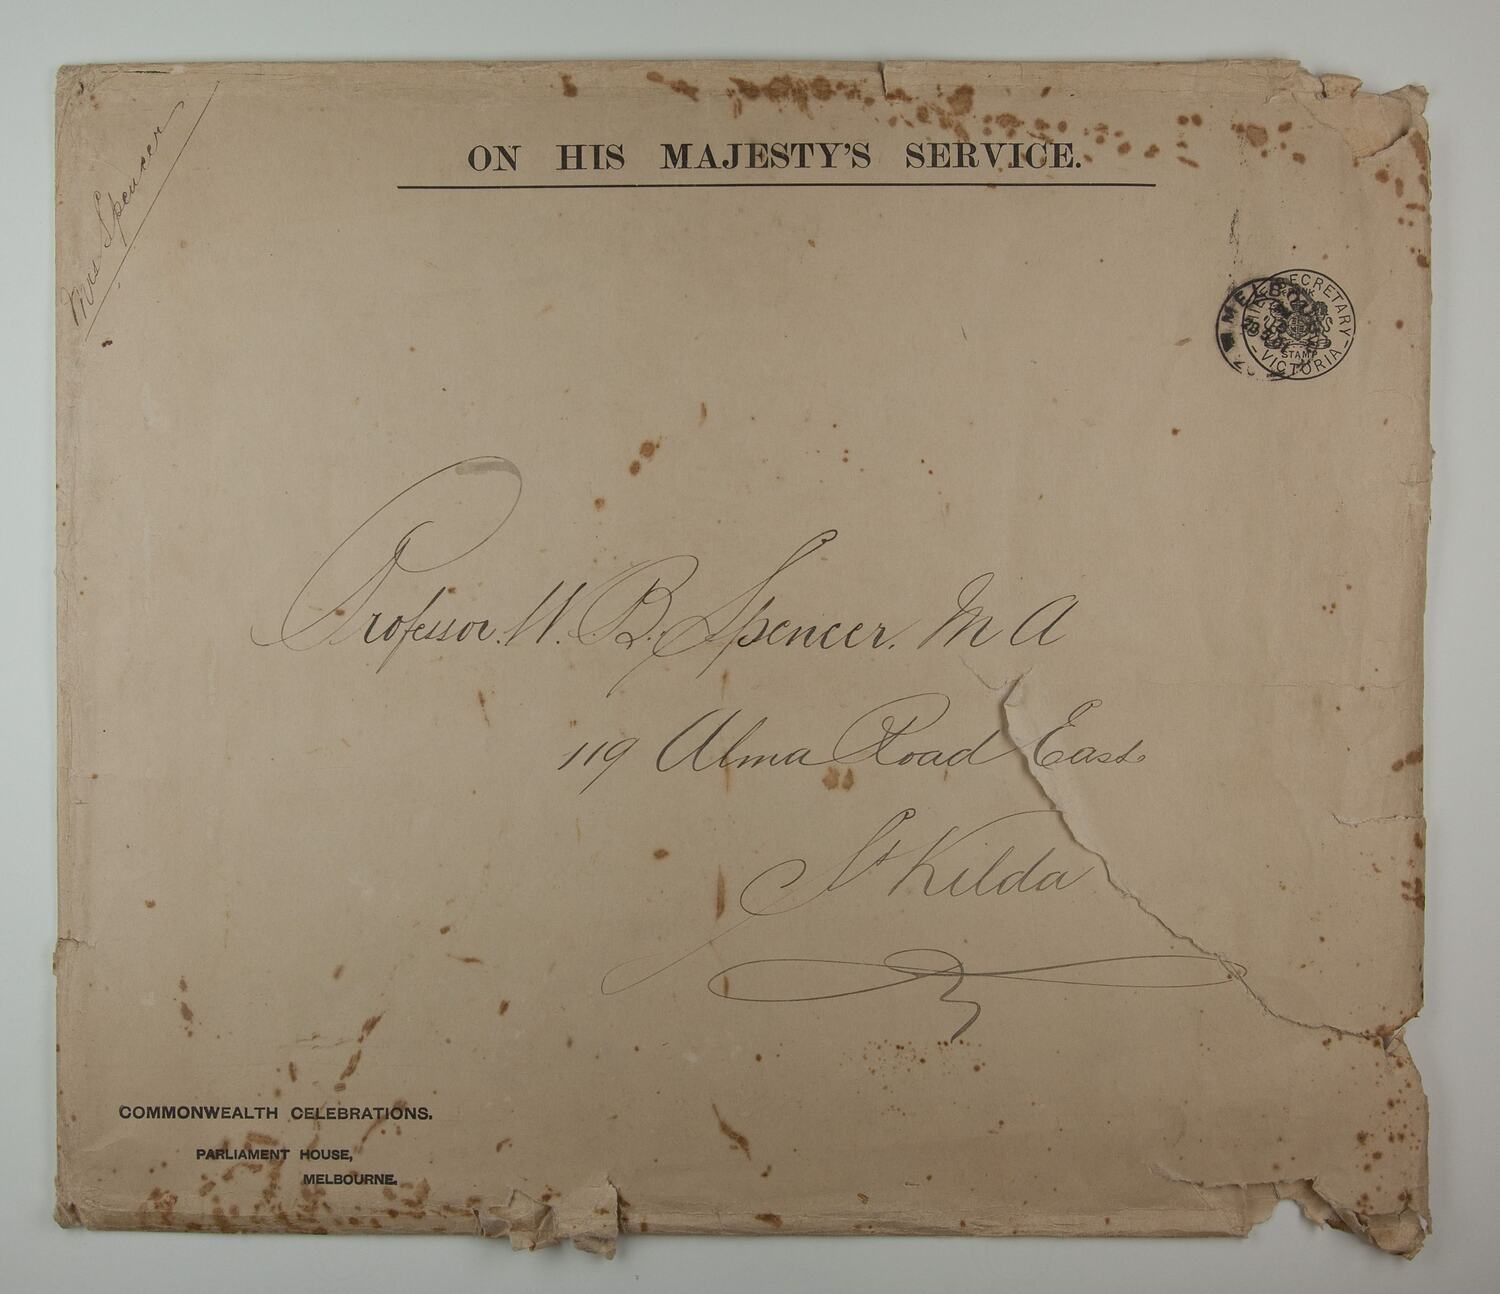 ON HIS MAJESTY'S SERVICE.
Mrs Spencer
SECRETARY
FRANK
STAMP
VICTORIA
MELBOU
Professor. W. B. Spencer. M A
119 Alma Road East
St Kilda
COMMONWEALTH CELEBRATIONS.
PARLIAMENT HOUSE,
MELBOURNE.